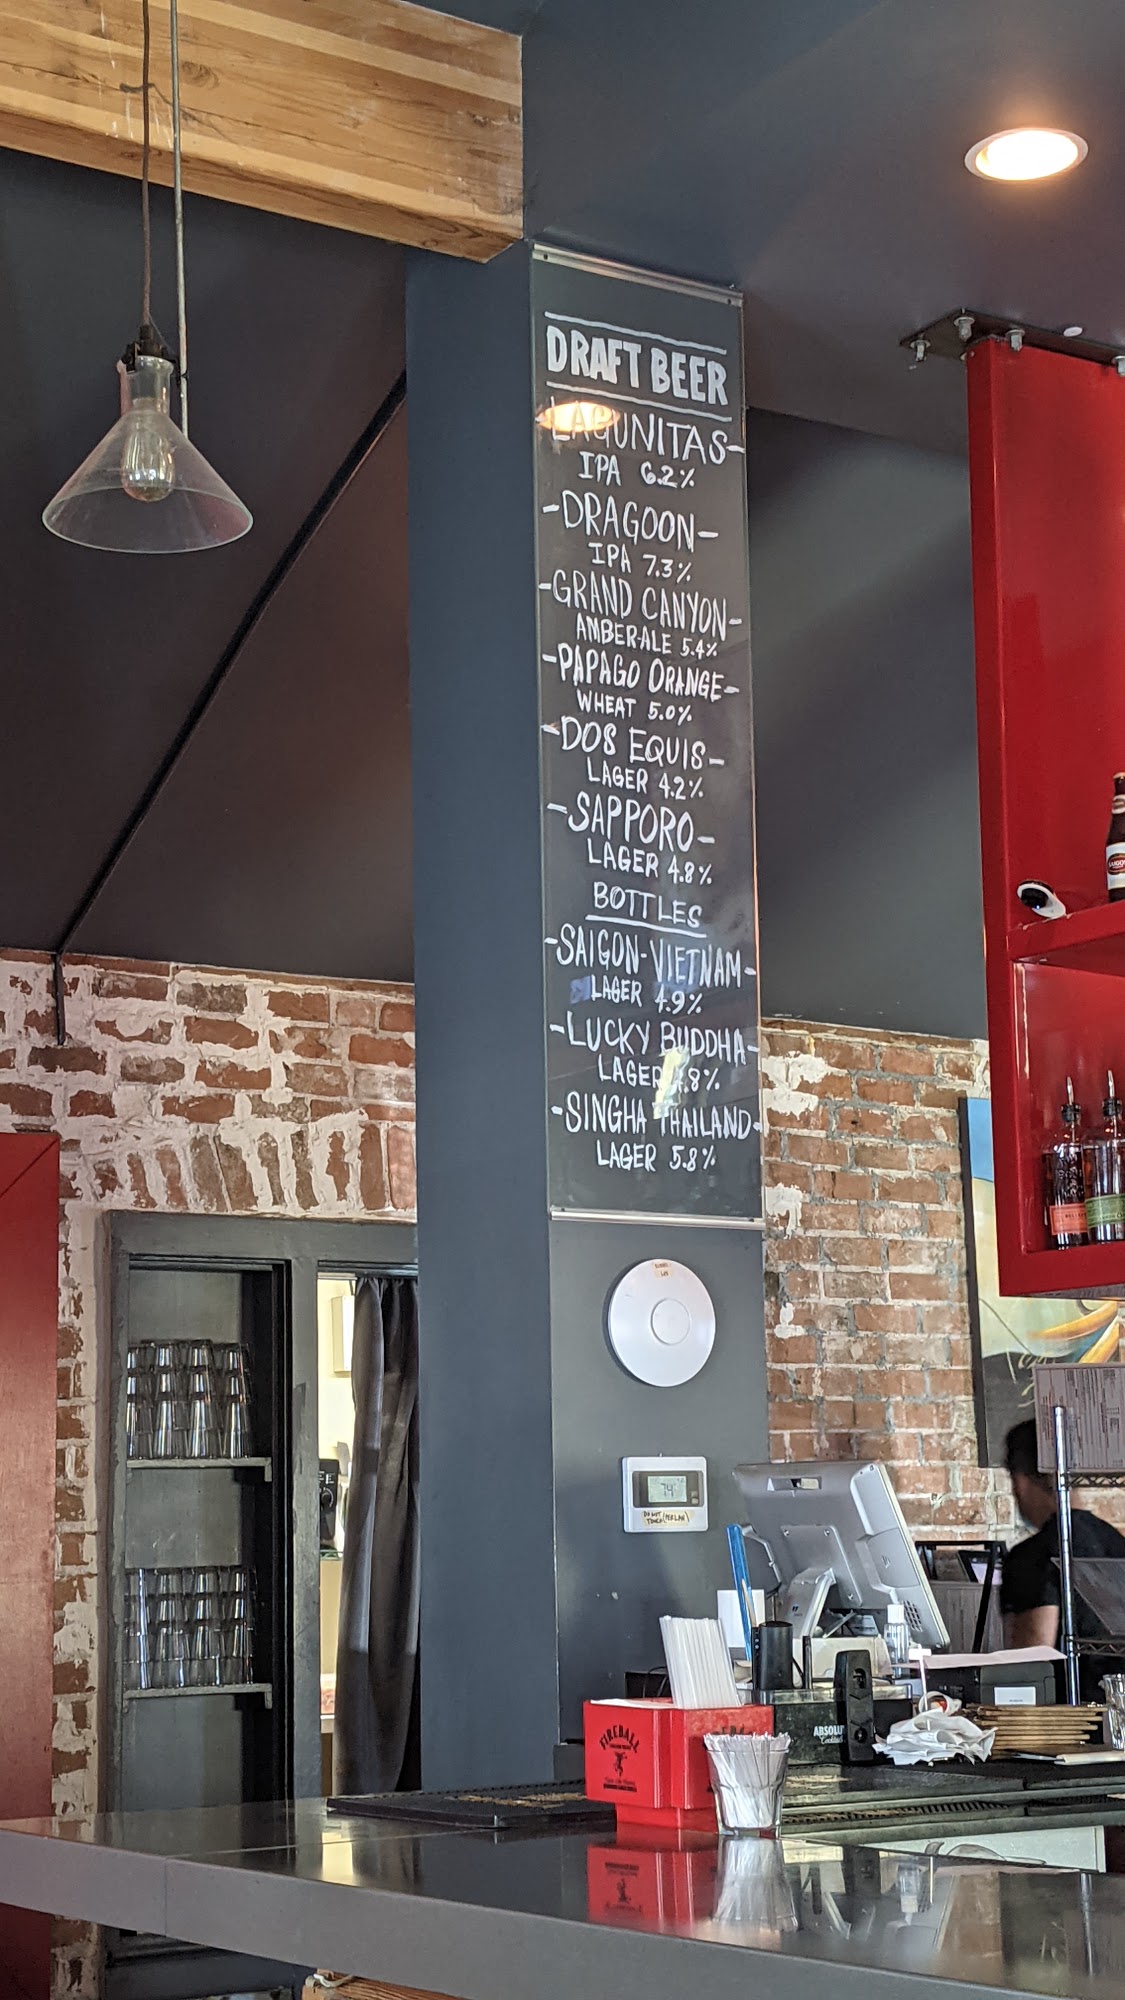 DRAFT BEER
LAGUNITAS-
IPA 6.2%
-DRAGOON-
IPA 7.3%
-GRAND CANYON-
AMBER-ALE 5.4%
-PAPAGO ORANGE-
WHEAT 5.0%
-DOS EQUIS-
LAGER 4.2%
-SAPPORO-
LAGER 4.8%
BOTTLES
-SAIGON-VIETNAM-
LAGER 4.9%
-LUCKY BUDDHA-
LAGER 4.8%
-SINGHA THAILAND-
LAGER 5.8%
74
DO NOT
TOUCH
FIREBALL
ABSOLU